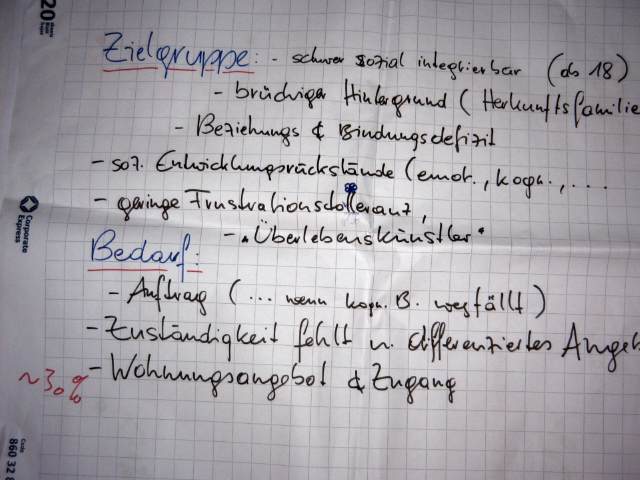 Zielgruppe: - schwer sozial integrierbar (ab 18)
- brüchiger Hintergrund (Herkunftsfamilie
- Beziehungs & Bindungsdefizit
- soz. Entwicklungsrückstände (emot., kogn., ...
- geringe Frustrationstolleranz,
- "Überlebenskünstler"
Bedarf:
- Auftrag (... wenn kogn. B. wegfällt)
- Zuständigkeit fehlt u. differenziertes Angeb
~30% - Wohnungsangebot & Zugang
20
Corporate Express
Code
860 32 8